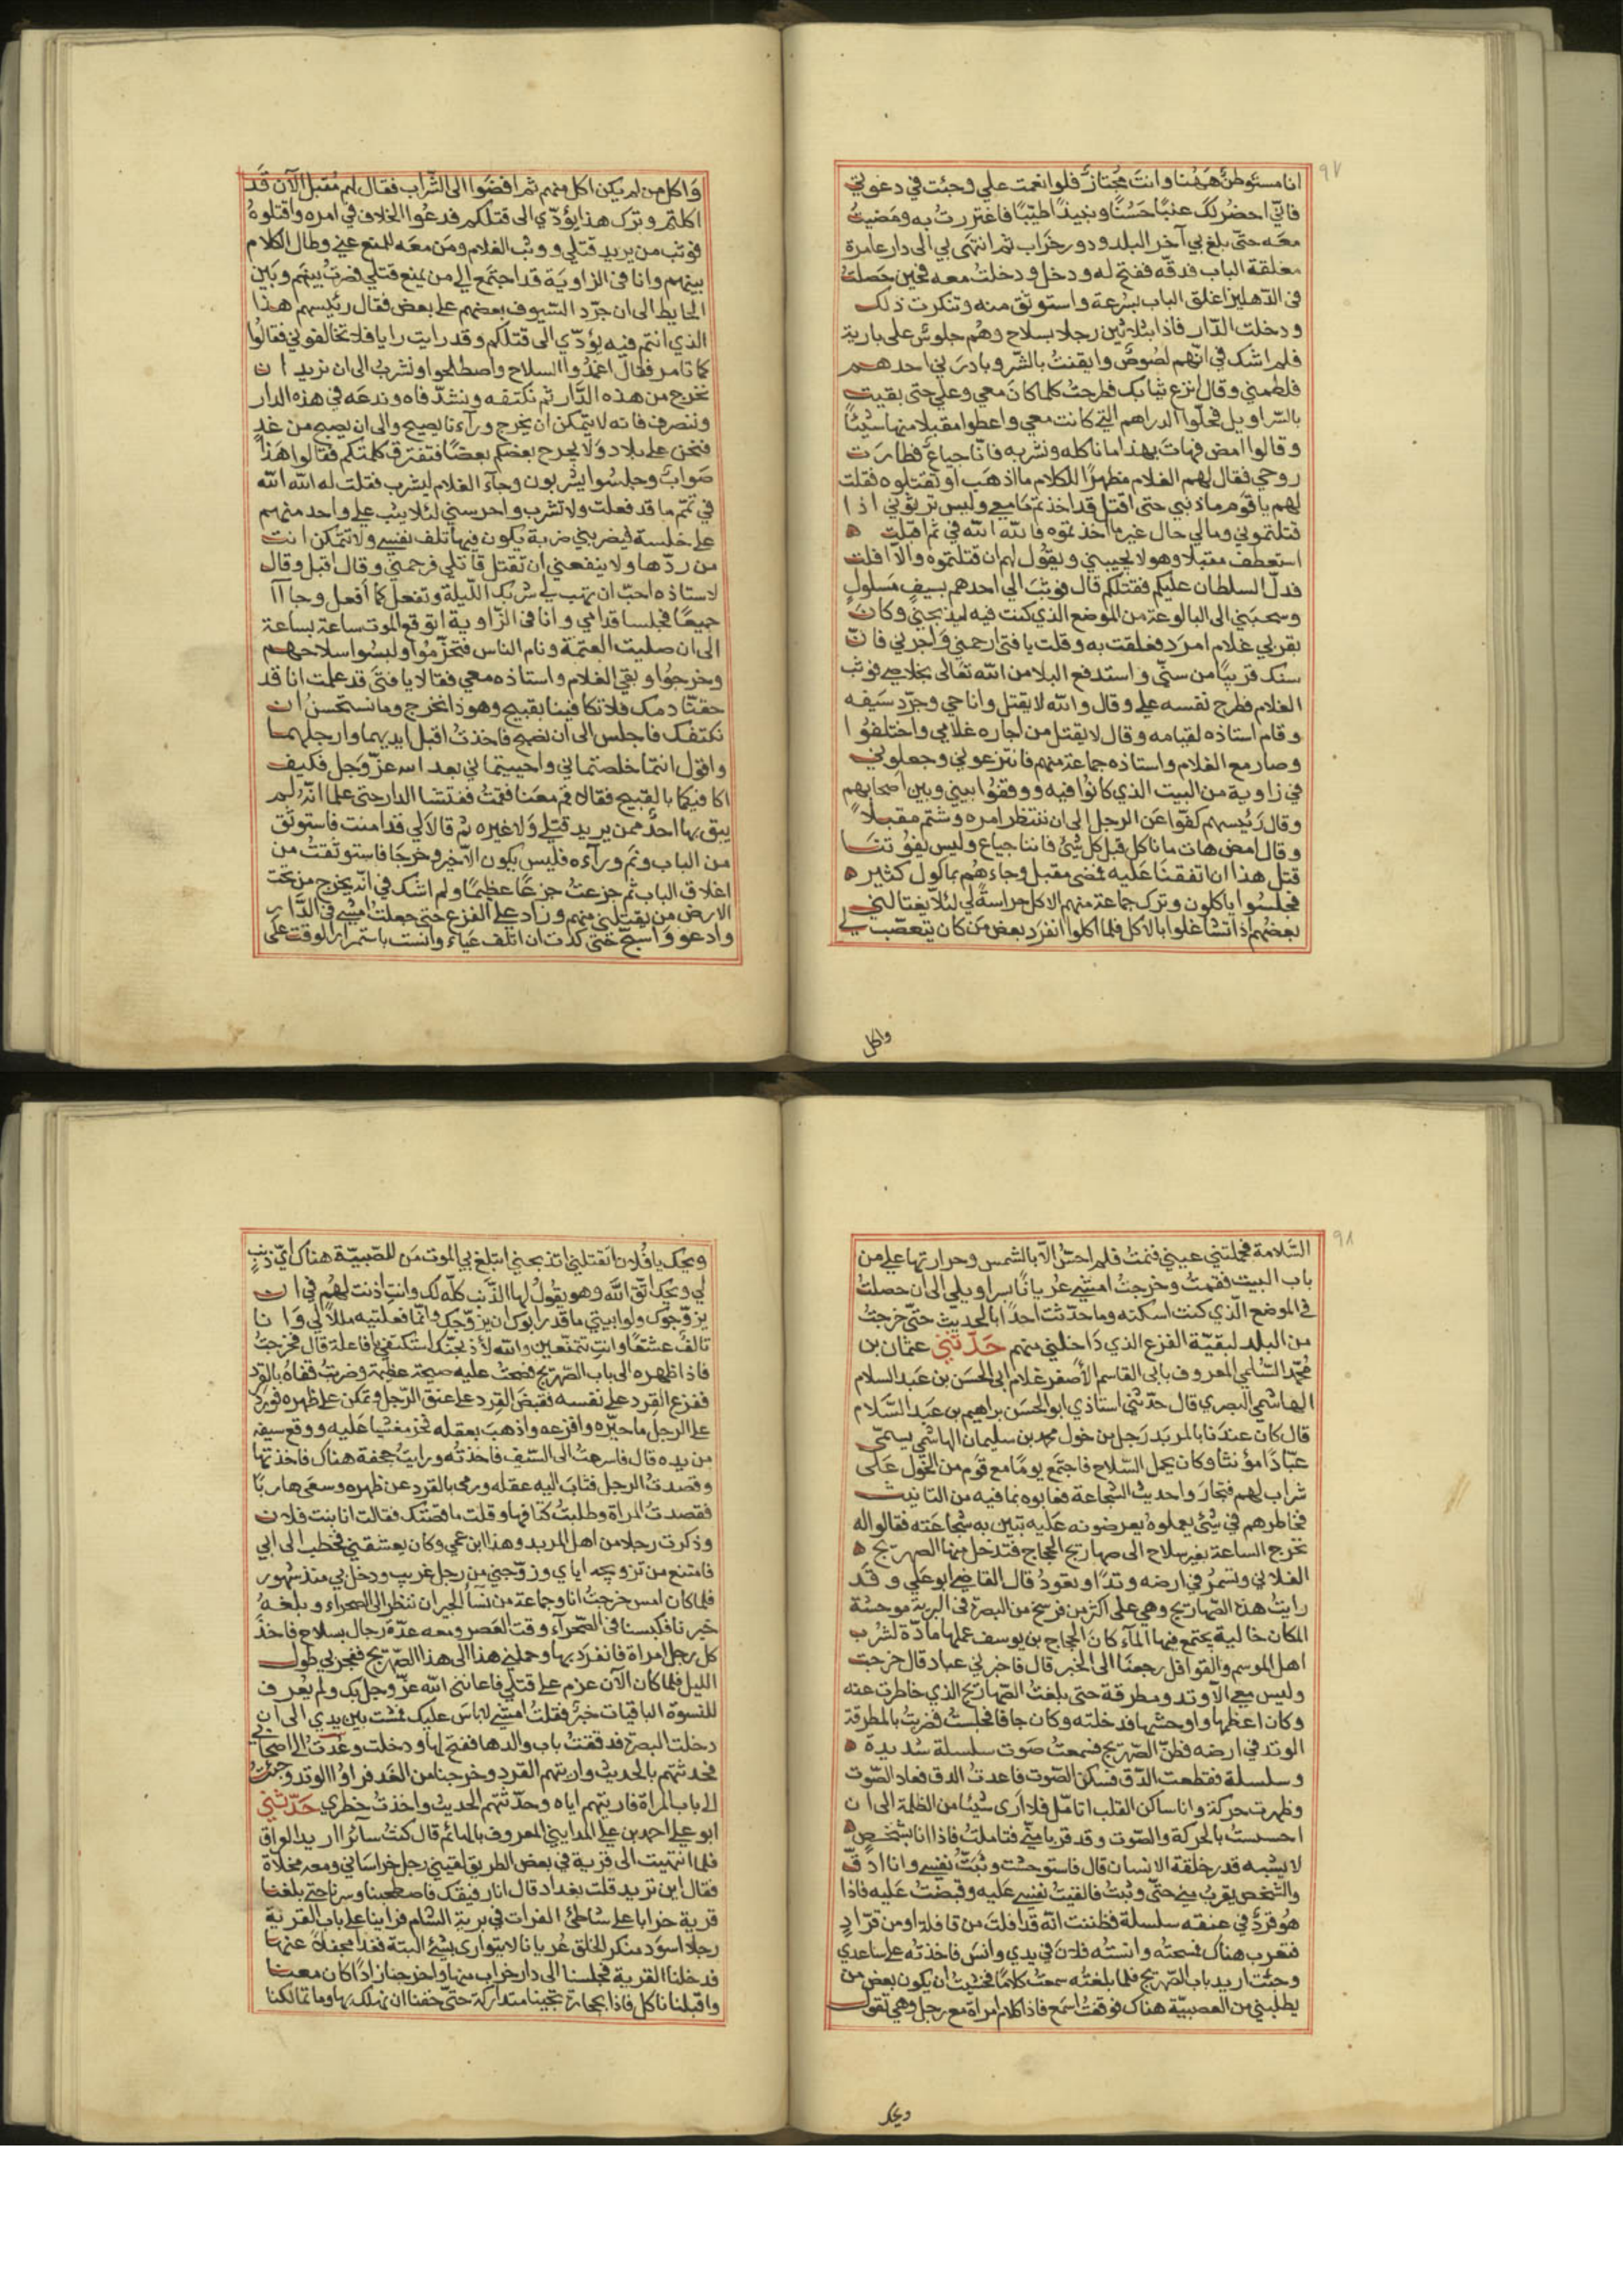 ٩٧
انا مستوطن ههنا وانت مجتاز فلو انعمت علي وجئت في دعوتي
فاني احضر لك عنبًا حسنًا ونبيذًا طيبًا فاغتررت به ومضيت
معه حتى بلغ بي آخر البلد ودور خراب ثم انتهى بي الى دار عامرة
مغلقة الباب فدقه ففتح له ودخل ودخلت معه فحين حصلت
في الدهليز اغلق الباب بسرعة واستوثق منه وتنكرت ذلك
ودخلت الدار فاذا بثلاثين رجلا بسلاح وهم جلوس على بارية
فلم اشك في انهم لصوص وايقنت بالشر وبادرني احدهم
فلطمني وقال انزع ثيابك فطرحت كلما كان معي وعلي حتى بقيت
بالسراويل فحلوا الدراهم التي كانت معي واعطوا مقبلا منها شيئًا
وقالوا امض فهات بهذا ما ناكله ونشربه فانا جياع فطارت
روحي فقال لهم الغلام مظهرًا للكلام ما اذهب او تقتلوه فقلت
لهم يا قوم ما ذنبي حتى اقتل قد اخذتم ما معي وليس ترثوني اذا
قتلتموني ومالي حال غير ما اخذتموه فالله الله في ثم اقبلت
استعطف مقبلا وهو لا يجيبني ويقول لهم ان قتلتموه والا افلت
فدل السلطان عليكم فقتلكم قال فوثب الي احدهم بسيف مسلول
وسحبني الى البالوعة من الموضع الذي كنت فيه ليذبحني وكان
بقربي غلام امرد فعلقت به وقلت يا فتى ارحمني واجرني فان
سنك قريبًا من سني واستدفع البلا من الله تعالى بخلاصي فوثب
الغلام فطرح نفسه علي وقال والله لا يقتل وانا حي وجرد سيفه
وقام استاذه لقيامه وقال لا يقتل من اجاره غلامي واختلفوا
وصار مع الغلام واستاذه جماعة منهم فانتزعوني وجعلوني
في زاوية من البيت الذي كانوا فيه ووقفوا بيني وبين اصحابهم
وقال رئيسهم كفوا عن الرجل الى ان ننتظر امره وشتم مقبلاً
وقال امض هات ما ناكل قبل كل شئ فاننا جياع وليس يفوتنا
قتل هذا ان اتفقنا عليه فمضى مقبل وجاءهم بماكول كثير
فجلسوا ياكلون وترك جماعة منهم الاكل حراسة لي لئلا يغتالني
بعضهم اذا تشاغلوا بالاكل فلما اكلوا انفرد بعض من كان يتعصب لي
واكل
واكل من لم يكن اكل منهم ثم افضوا الى الشراب فقال لهم مقبل الآن قد
اكلتم وترك هذا يؤدي الى قتلكم فدعوا الخلاف في امره واقتلوه
فوثب من يريد قتلي ووثب الغلام ومن معه للمنع عني وطال الكلام
بينهم وانا في الزاوية قد اجتمع الي من يمنع قتلي فصرت بينهم وبين
الحايط الى ان جرد السيوف بعضهم على بعض فقال رئيسهم هذا
الذي انتم فيه يؤدي الى قتلكم وقد رايت رايا فلا تخالفوني فقالوا
كما تامر فقال اغمدوا السلاح واصطلحوا ونشرب الى ان نريد ان
نخرج من هذه الدار ثم نكتفه ونشد فاه وندعه في هذه الدار
وننصرف فانه لا يتمكن ان يخرج ورآءنا يصيح والى ان يصبح من غد
فنحن على بلاد ولا يجرح بعضكم بعضًا فتفترق كلمتكم فقالوا هذا
صواب وجلسوا يشربون وجآء الغلام ليشرب فقلت له الله الله
في تمم ما قد فعلت ولا تشرب واحرسني لئلا يثب علي واحد منهم
على خلسة فيضربني ضربة يكون فيها تلف نفسي ولا تتمكن انت
من ردها ولا ينفعني ان تقتل قاتلي فرحمني وقال اقبل وقال
لاستاذه احب ان تهب لي شربك الليلة وتفعل كما افعل وجاآ
جميعًا فجلسا قدامي وانا في الزاوية اتوقع الموت ساعة بساعة
الى ان صليت العتمة ونام الناس فتحزموا ولبسوا سلاحهم
وخرجوا وبقي الغلام واستاذه معي فقالا يا فتى قد علمت انا قد
حقنا دمك فلا تكافينا بقبيح وهوذا نخرج وما نستحسن ان
نكتفك فاجلس الى ان نصبح فاخذت اقبل ايديهما وارجلهما
واقول انتما خلصتماني واحييتماني بعد الله عز وجل فكيف
اكافيكما بالقبيح فقالا قم معنا فقمت ففتشا الدار حتى علما انه لم
يبق بها احد ممن يريد قتلي ولا غيره ثم قالا لي قد امنت فاستوثق
من الباب وثم ورآءه فليس يكون الا خير وخرجا فاستوثقت من
اغلاق الباب ثم جزعت جزعًا عظيمًا ولم اشك في انه يخرج من تحت
الارض من يقتلني منهم وزاد علي الفزع حتى جعلت امشي في الدار
وادعو واسبح حتى كدت ان اتلف عياءً وانست باستمرار الوقت على
٩٨
السلامة فحملتني عيني فنمت فلم احس الا بالشمس وحرارتها علي من
باب البيت فقمت وخرجت امشي عريانًا بسراويلي الى ان حصلت
في الموضع الذي كنت اسكنه وما حدثت احدًا بالحديث حتى خرجت
من البلد لبقية الفزع الذي داخلني منهم حدثني عثمان بن
محمد السلمي المعروف بابي القاسم الاصفر غلام ابي الحسن بن عبد السلام
الهاشمي البصري قال حدثني استاذي ابو الحسن براهيم بن عبد السلام
قال كان عندنا بالمربد رجل من خول محمد بن سليمان الهاشمي يسمى
عبادًا مؤنثا وكان يحمل السلاح فاجتمع يومًا مع قوم من الخول على
شراب لهم فتجاروا حديث الشجاعة فعابوه بما فيه من التانيث
فخاطرهم في شئ يعملوه يعرضونه عليه تبين به شجاعته فقالوا له
تخرج الساعة بغير سلاح الى صهاريج الحجاج فتدخل منها الصهريج
الفلاني وتسمر في ارضه وتدًا وتعود قال القاضي ابو علي وقد
رايت هذه الصهاريج وهي على اكثر من فرسخ من البصرة في البرية موحشة
المكان خالية يجتمع فيها المآء كان الحجاج بن يوسف عملها مادة لشرب
اهل الموسم والقوافل رجعنا الى الخبر قال فاخبرني عباد قال خرجت
وليس معي الا وتد ومطرقة حتى بلغت الصهاريج الذي خاطرت عنه
وكان اعظمها واوحشها فدخلته وكان جافا فجلست فضربت بالمطرقة
الوتد في ارضه فطن الصهريج فسمعت صوت سلسلة شديدة
وسلسلة فقطعت الدق فسكن الصوت فاعدت الدق فعاد الصوت
وظهرت حركة وانا ساكن القلب اتامل فلا ارى شيئا من الظلمة الى ان
احسست بالحركة والصوت وقد قربا مني فتاملت فاذا انا بشخص
لا يشبه قدر خلقة الانسان قال فاستوحشت وثبت نفسي وانا ادق
والشخص يقرب مني حتى وثبت فالقيت نفسي عليه وقبضت عليه فاذا
هو قرد في عنقه سلسلة فظننت انه قد افلت من قافلة او من قراد
فتقرب هناك فمسحته وانسته فلان في يدي وانس فاخذته على ساعدي
وجئت اريد باب الصهريج فلما بلغته سمعت كلامًا فخشيت ان يكون بعض من
يطلبني من العصبية هناك فوقفت اسمع فاذا كلام امراة مع رجل وهي تقول
ويحك
ويحك يا فلان اتقتلني اتذبحني اتبلغ بي الموت من للصبية هناك اي ذنب
لي ويحك اتق الله وهو يقول لها الذنب كله لك وانت اذنت لهم في ان
يزوجوك ولو ابيتي ما قدر ابوك ان يزوجك وانما فعلتيه مللاً لي وانا
تالف عشقًا وانت تتمتعين والله لاذبحنك استكتفي يا فاعلة قال فخرجت
فاذا ظهره الى باب الصهريج فصحت عليه صيحة عظيمة وضربت قفاه بالقرد
ففزع القرد على نفسه فقبض القرد على عنق الرجل وتمكن على ظهره فورد
على الرجل ما حيره وافزعه واذهب بعقله فخر مغشيا عليه ووقع سيفه
من يده قال فاسرعت الى السيف فاخذته ورايت جحفة هناك فاخذتها
وقصدت الرجل فثاب اليه عقله ورمى بالقرد عن ظهره وسعى هاربًا
فقصدت المراة وطلبت كتافها وقلت ما قصتك فقالت انا بنت فلان
وذكرت رجلا من اهل المربد وهذا ابن عمي وكان يعشقني فخطب الى ابي
فامتنع من تزويجه اياي وزوجني من رجل غريب ودخل بي منذ شهور
فلما كان امس خرجت انا وجماعة من نسآ الجيران ننظر الى الصحراء وبلغه
خبرنا فكبسنا في الصحرآء وقت العصر ومعه عدة رجال بسلاح فاخذ
كل رجل امراة فانفرد بها وحملني هذا الى هذا الصهريج ففجر بي طول
الليل فلما كان الآن عزم على قتلي فاعانني الله عز وجل بك ولم يعرف
للنسوة الباقيات خبر فقلت امشي لا باس عليك فمشت بين يدي الى ان
دخلت البصرة فدققت باب والدها ففتح لها ودخلت وعدت الى اصحابي
فحدثتهم بالحديث واريتهم القرد وخرجنا من الغد فراوا الوتد وجئت
الى باب المراة فاريتهم اياه وحدثتهم الحديث واخذت خطري حدثني
ابو علي احمد بن علي المدايني المعروف بالهائم قال كنت سائرًا اريد الواق
فلما انتهيت الى قرية في بعض الطريق لقيني رجل خراساني ومعه مخلاة
فقال اين تريد قلت بغداد قال انا رفيقك فاصطحبنا وسرنا حتى بلغنا
قرية خرابا على شاطئ الفرات في برية الشام فراينا على باب القرية
رجلا اسود منكر الخلق عريانا لا يتوارى بشئ البتة فغدا مجفلاً عنها
فدخلنا القرية فجلسنا الى دار خراب منها واخرجنا زادًا كان معنا
واقبلنا ناكل فاذا بحجارة تجينا متداركة حتى خفنا ان نهلك بها وما تمالكنا